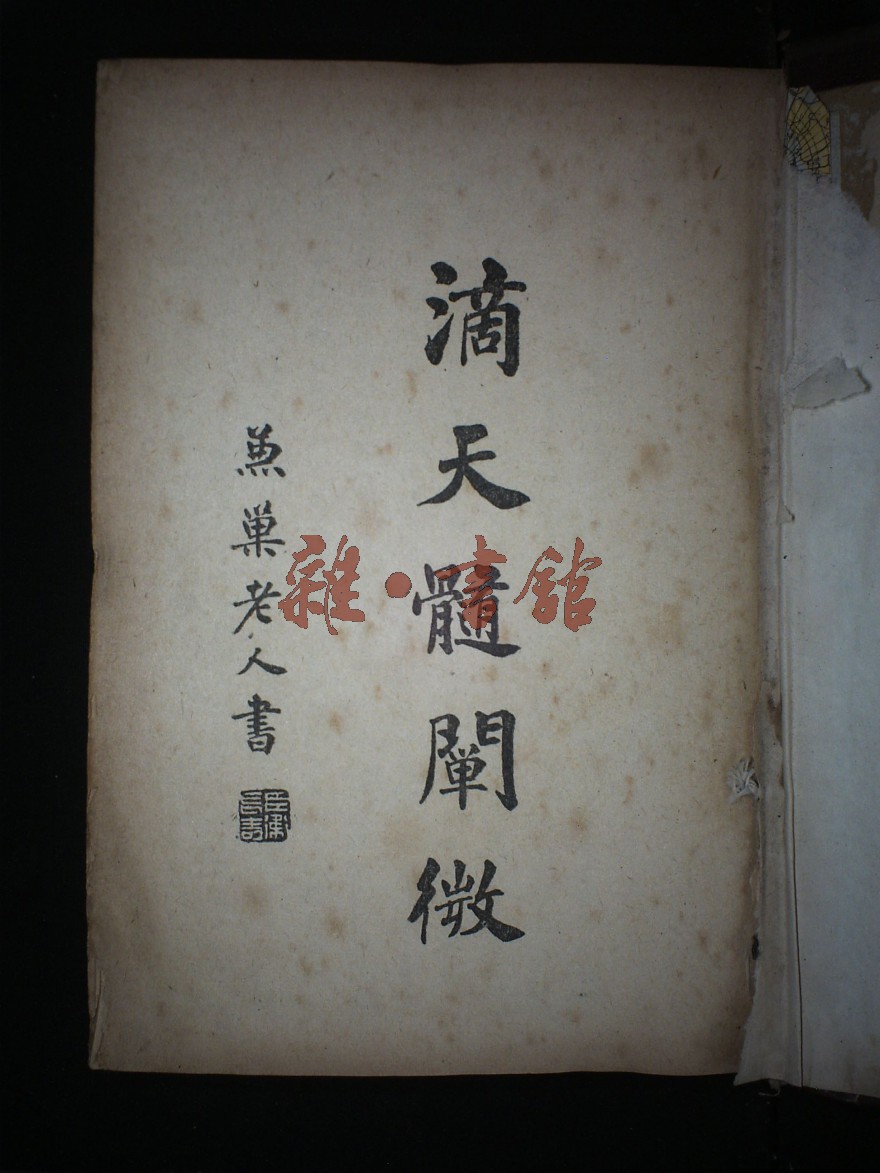 滴天髓闡微
兼巢老人書
雜·書館